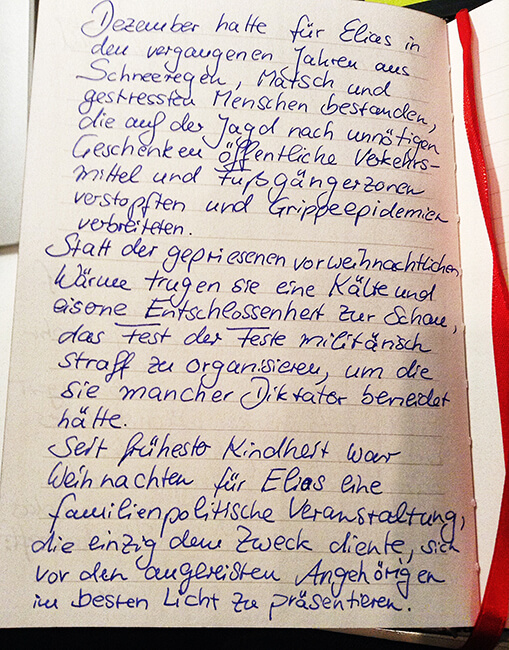 Dezember hatte für Elias in
den vergangenen Jahren aus
Schneeregen, Matsch und
gestressten Menschen bestanden,
die auf der Jagd nach unnötigen
Geschenken öffentliche Verkehrs-
mittel und Fußgängerzonen
verstopften und Grippeepidemien
verbreiteten.
Statt der gepriesenen vorweihnachtlichen
Wärme trugen sie eine Kälte und
eiserne Entschlossenheit zur Schau,
das Fest der Feste militärisch
straff zu organisieren, um die
sie mancher Diktator beneidet
hätte.
Seit frühester Kindheit war
Weihnachten für Elias eine
familienpolitische Veranstaltung,
die einzig dem Zweck diente, sich
vor den angereisten Angehörigen
im besten Licht zu präsentieren.